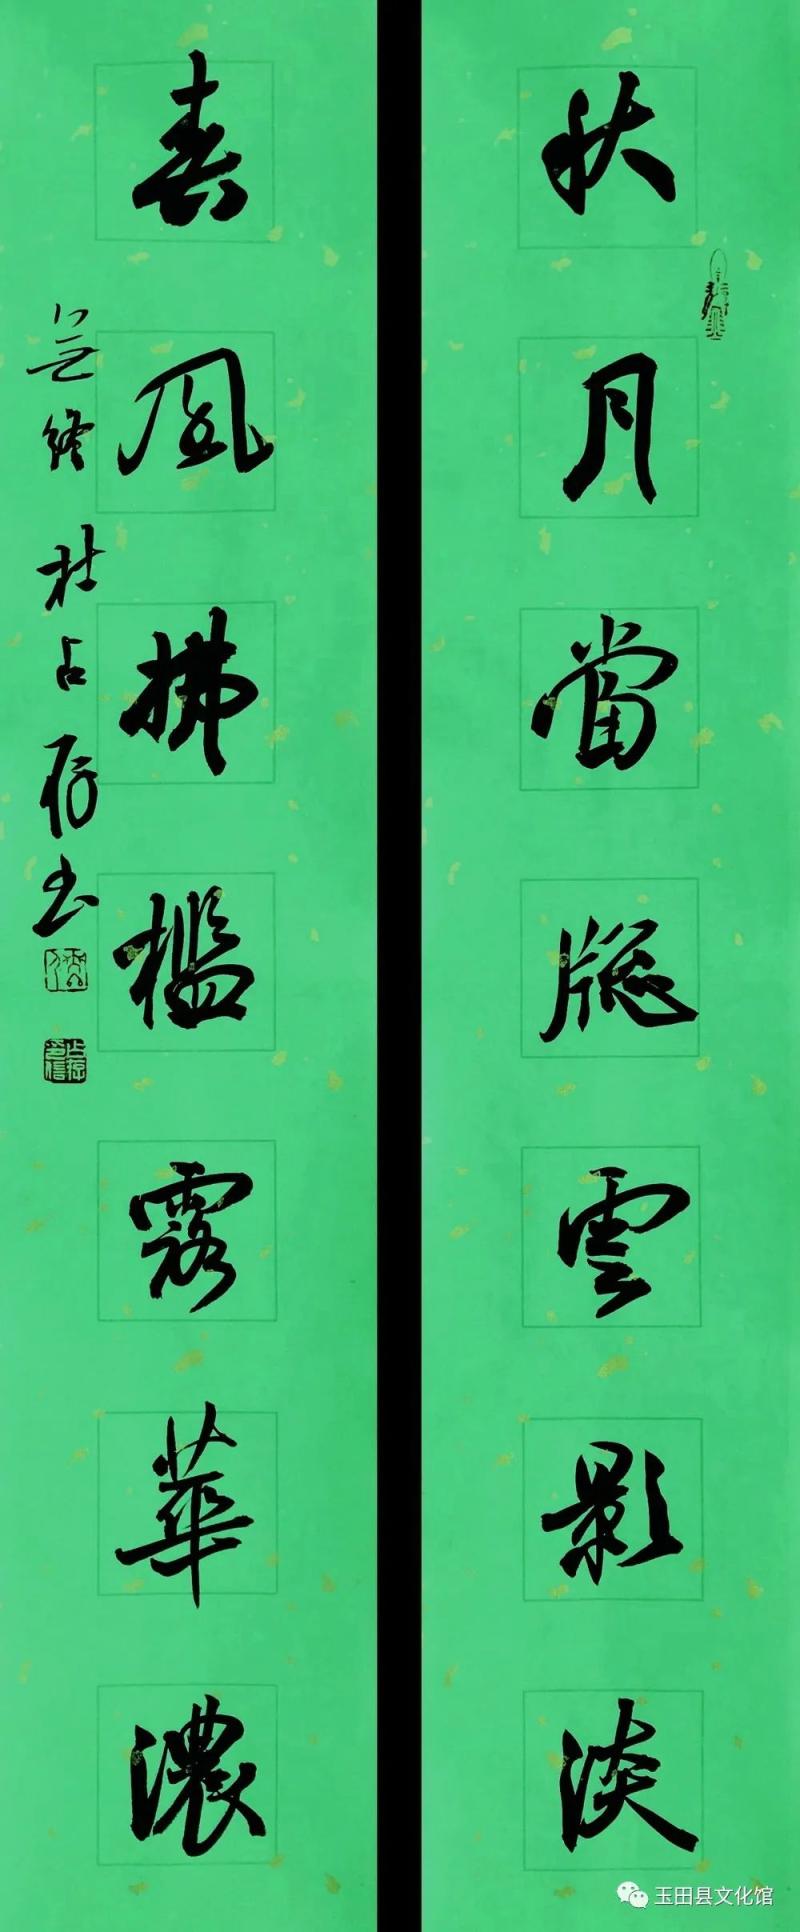 秋月當牕雲影淡
春風拂檻露華濃
無終杜占存书
玉田县文化馆